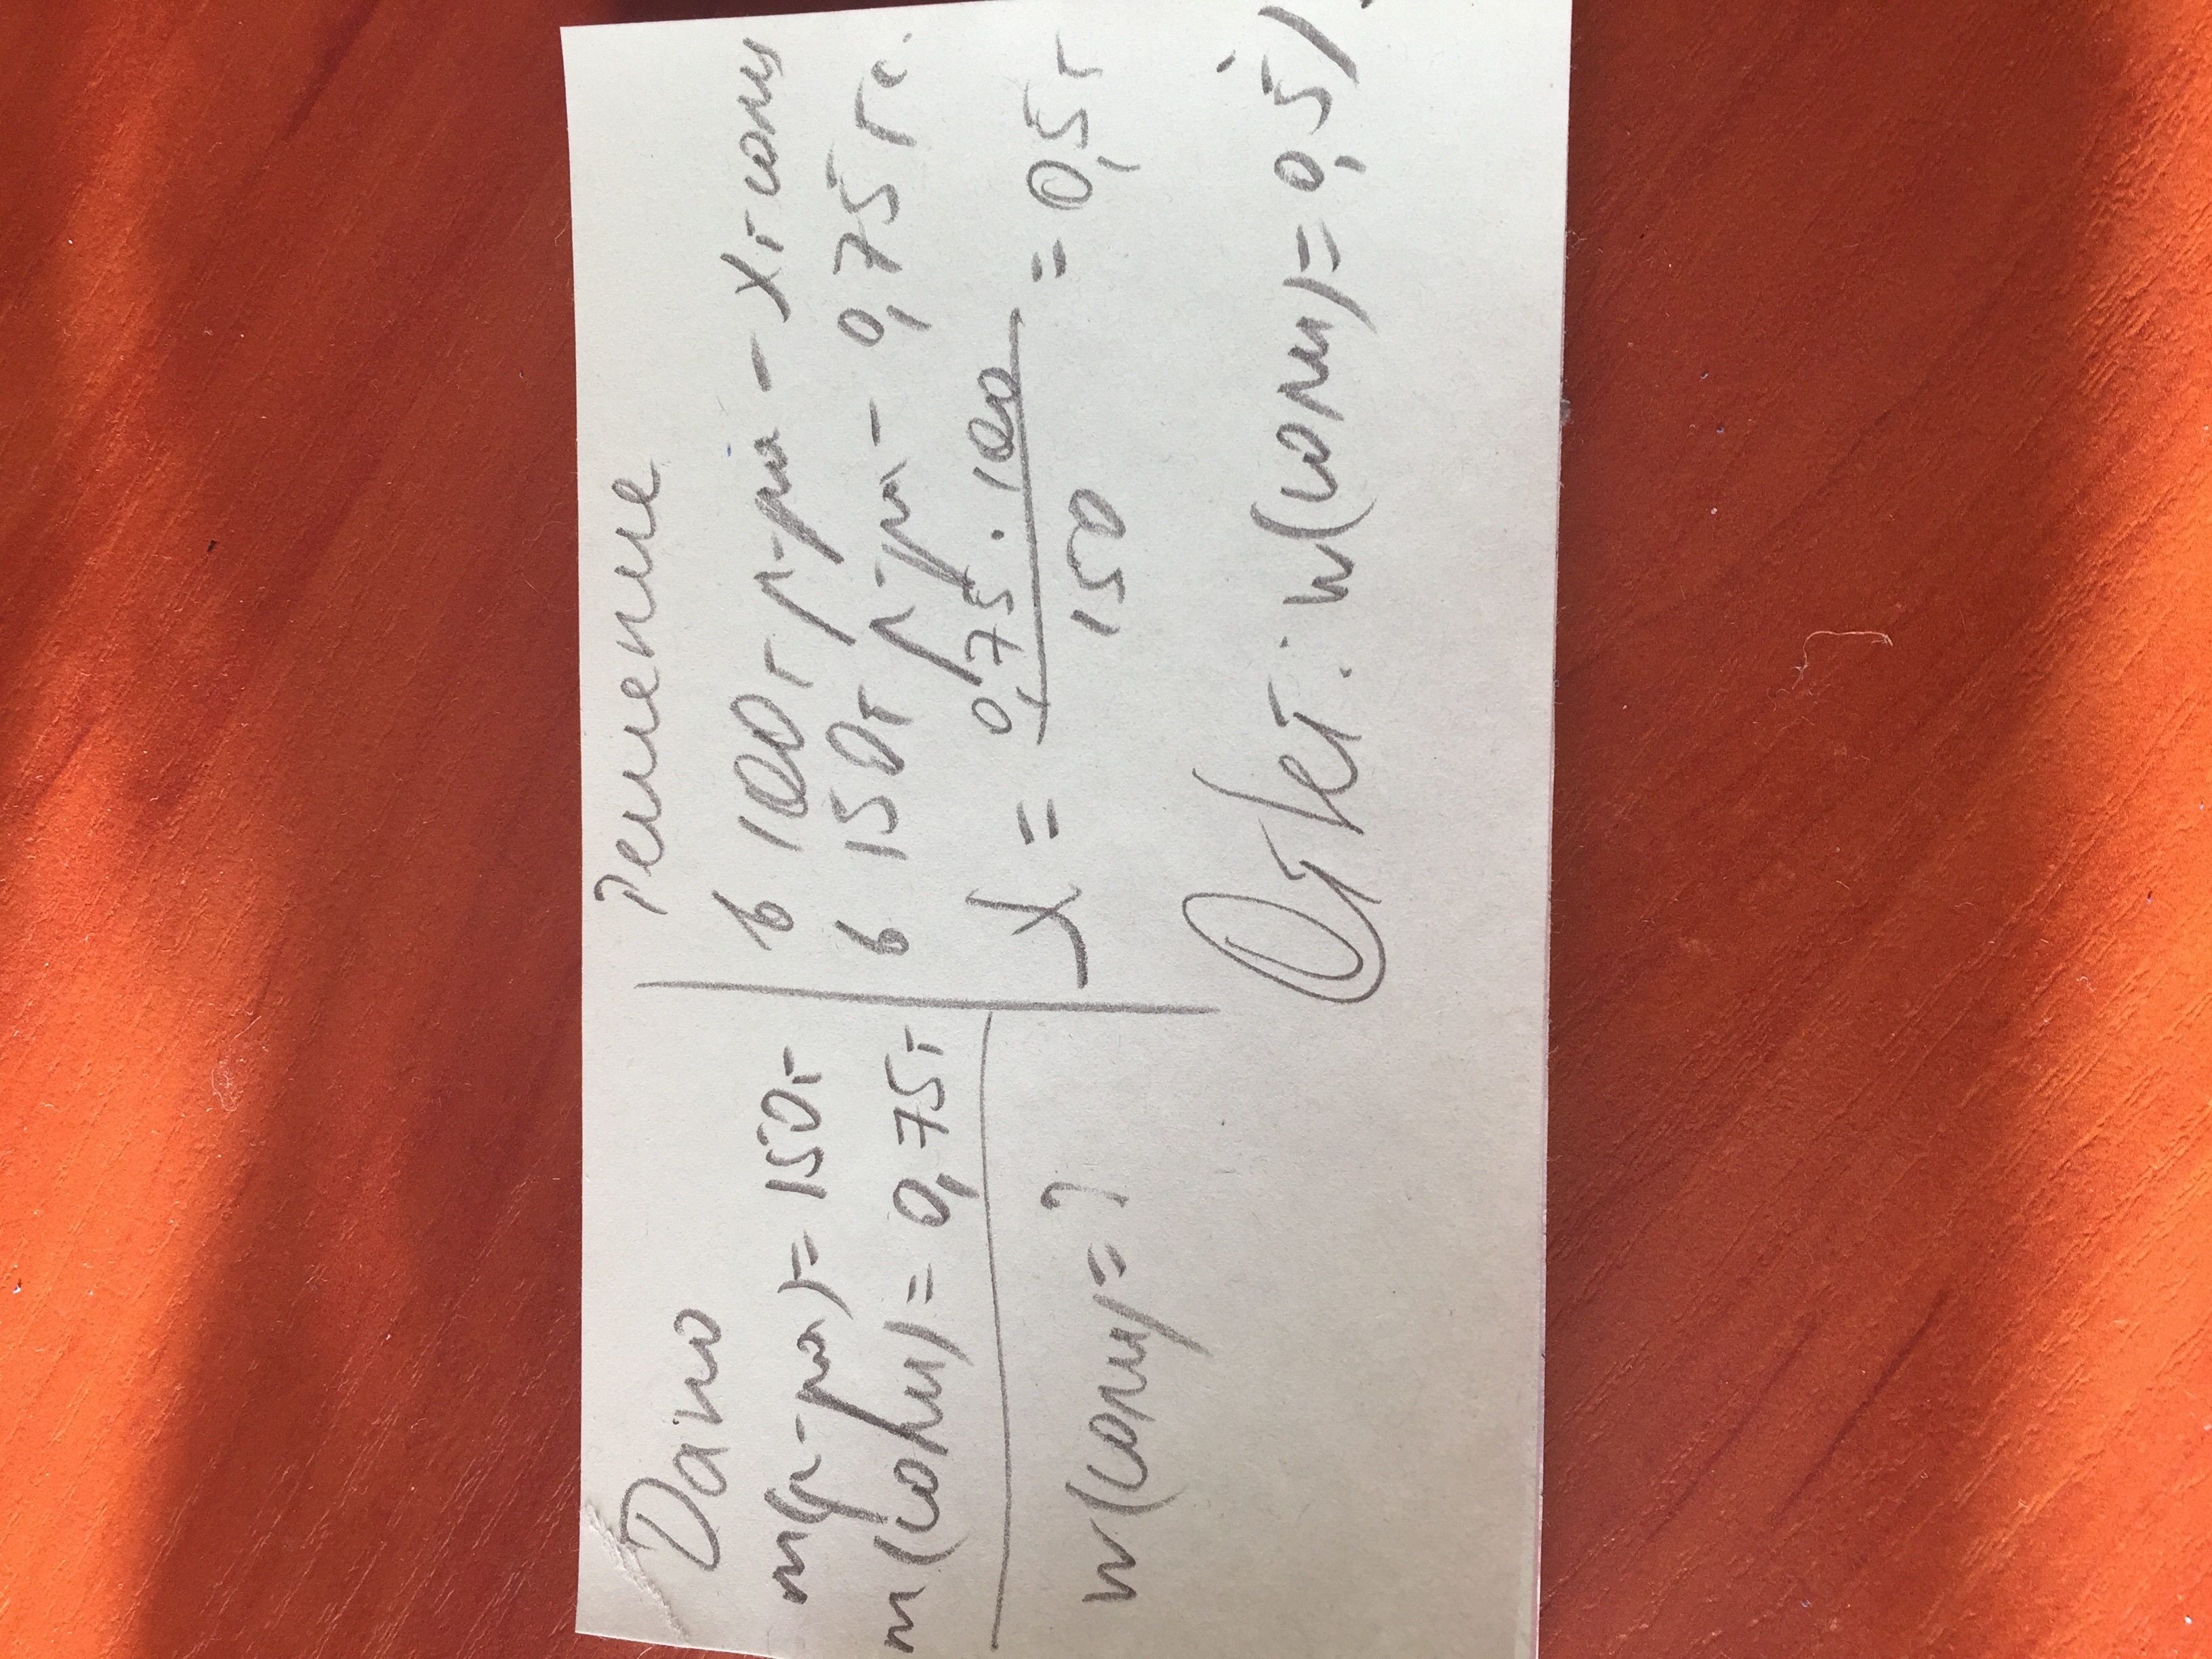 Дано
m(р-ра)=150г
m(соли)=0,75г
w(соли)=?
Решение
в 100г р-ра - Xг соли
в 150г р-ра - 0,75г с.
X = 0,75·100 / 150 = 0,5г
Ответ: w(соли)=0,5%